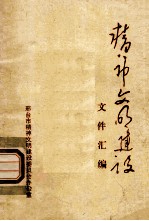 精神文明建设
文件汇编
邢台市精神文明建设委员会办公室